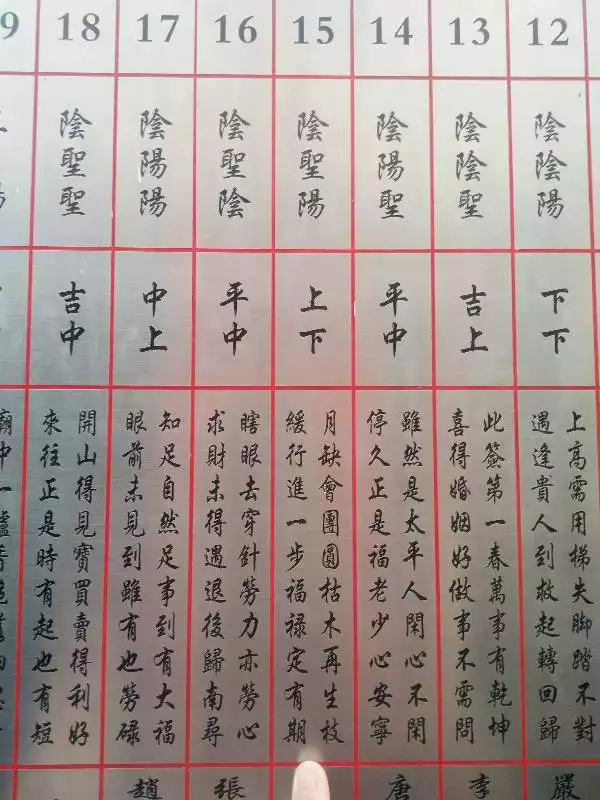 12
陰陰陽
下下
上高需用梯失脚踏不對
遇逢貴人到救起轉回歸
嚴
13
陰陰聖
吉上
此簽第一春萬事有乾坤
喜得婚姻好做事不需問
李
14
陰陽聖
平中
雖然是太平人閑心不閑
停久正是福老少心安寧
唐
15
陰聖陽
上下
月缺會團圓枯木再生枝
緩行進一步福祿定有期
16
陰聖陰
平中
瞎眼去穿針勞力亦勞心
求財未得遇退後歸南尋
張
17
陰陽陽
中上
知足自然足事到有大福
眼前未見到雖有也勞碌
趙
18
陰聖聖
吉中
開山得見寶買賣得利好
來往正是時有起也有短
9